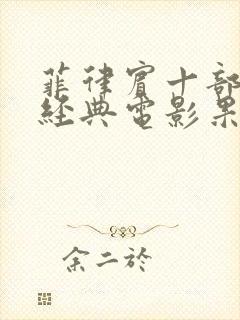 菲律賓十部
經典電影果
余二於